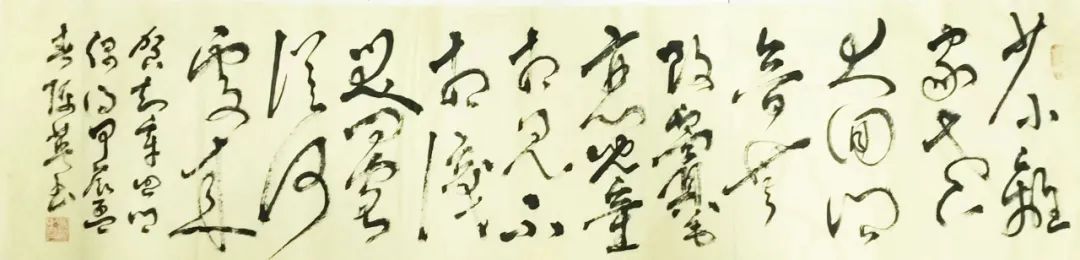 少小離
家老
大回鄉
音無
改鬢毛
衰兒童
相見不
相識
笑問客
從何
處來
賀知章回鄉
偶書甲辰孟
春陳英書